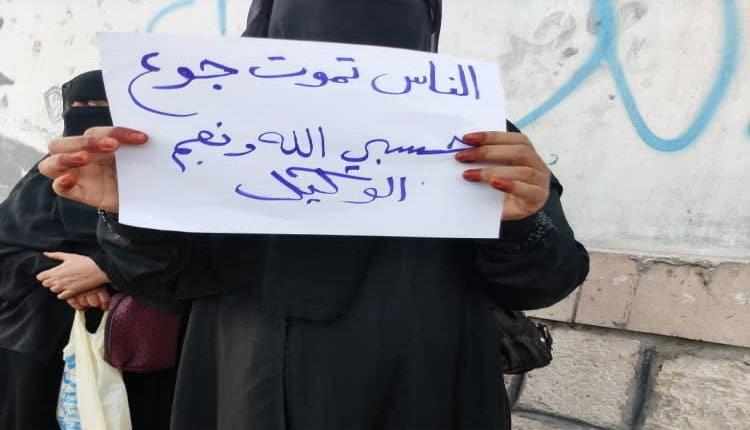 الناس تموت جوع
حسبي الله ونعم
الوكيل